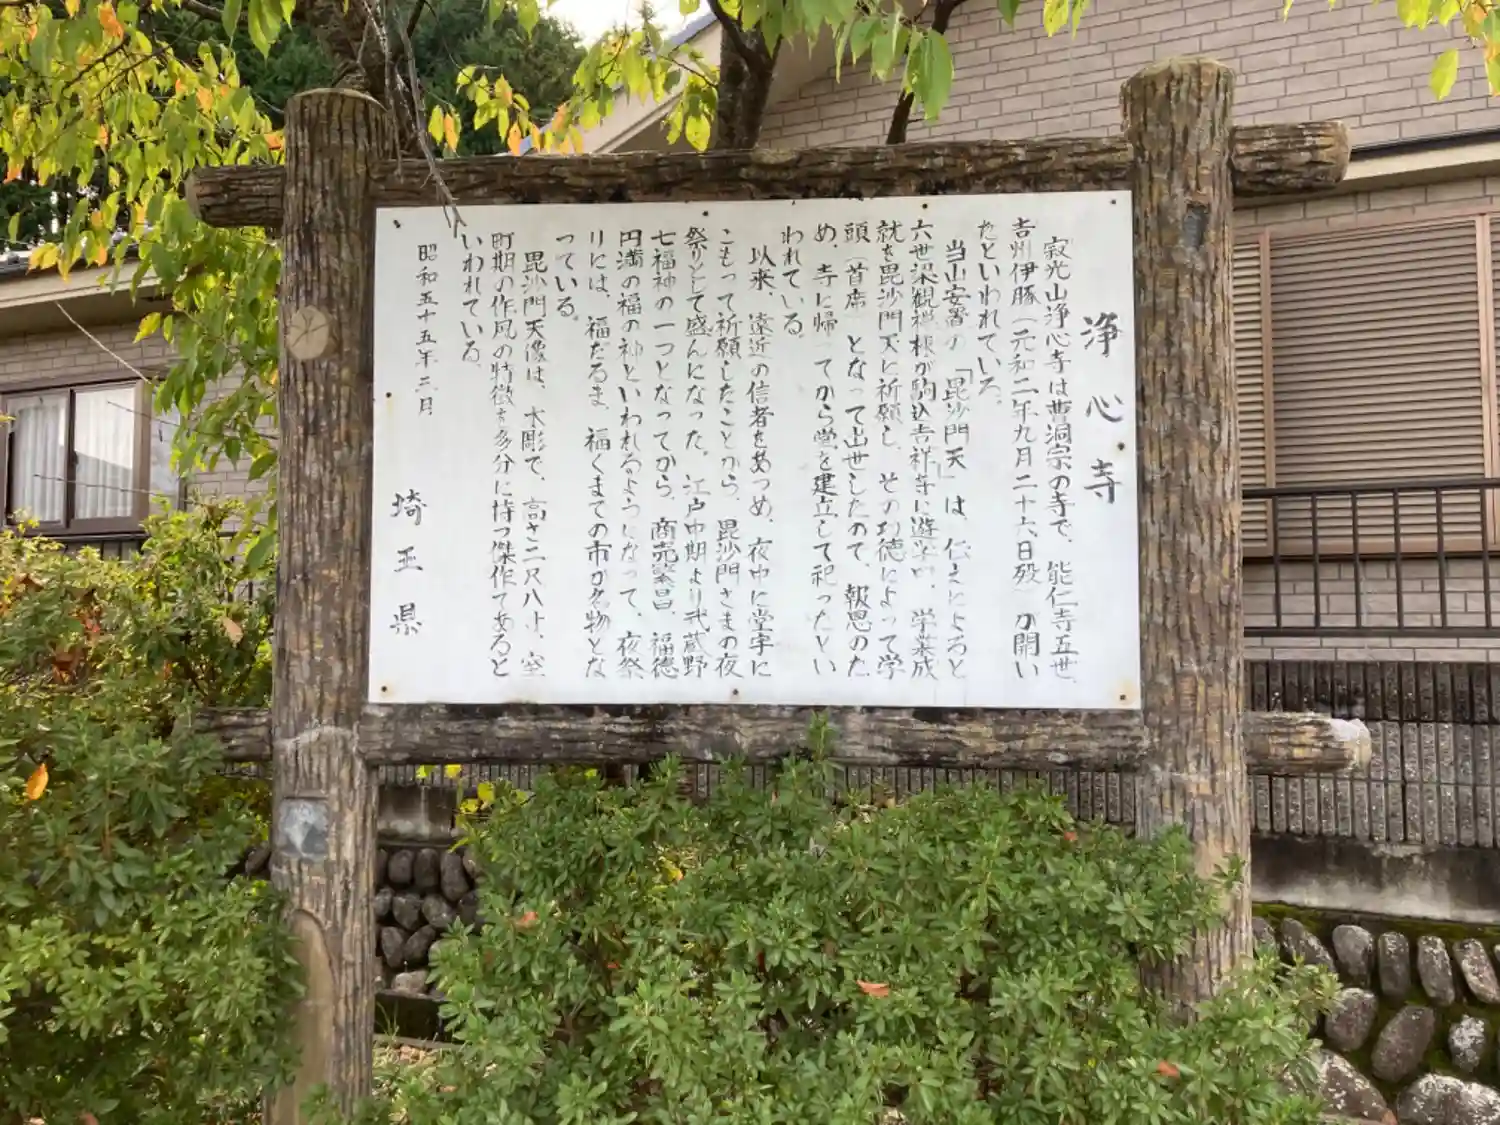 浄心寺
寂光山浄心寺は曹洞宗の寺で、能仁寺五世、
吉州伊豚（元和二年九月二十六日歿）が開い
たといわれている。
当山安置の「毘沙門天」は、伝えによると
六世梁観禅根が駒込吉祥寺に遊学中、学業成
就を毘沙門天に祈願し、その功徳によって学
頭（首席）となって出世したので、報恩のた
め、寺に帰ってから堂を建立して祀ったとい
われている。
以来、遠近の信者をあつめ、夜中に堂宇に
こもって祈願したことから、毘沙門さまの夜
祭りとして盛んになった。江戸中期より武蔵野
七福神の一つとなってから、商売繁昌、福徳
円満の福の神といわれるようになって、夜祭
りには、福だるま、福くまでの市が名物とな
っている。
毘沙門天像は、木彫で、高さ二尺八寸、室
町期の作風の特徴を多分に持つ傑作であると
いわれている。
昭和五十五年三月
埼玉県